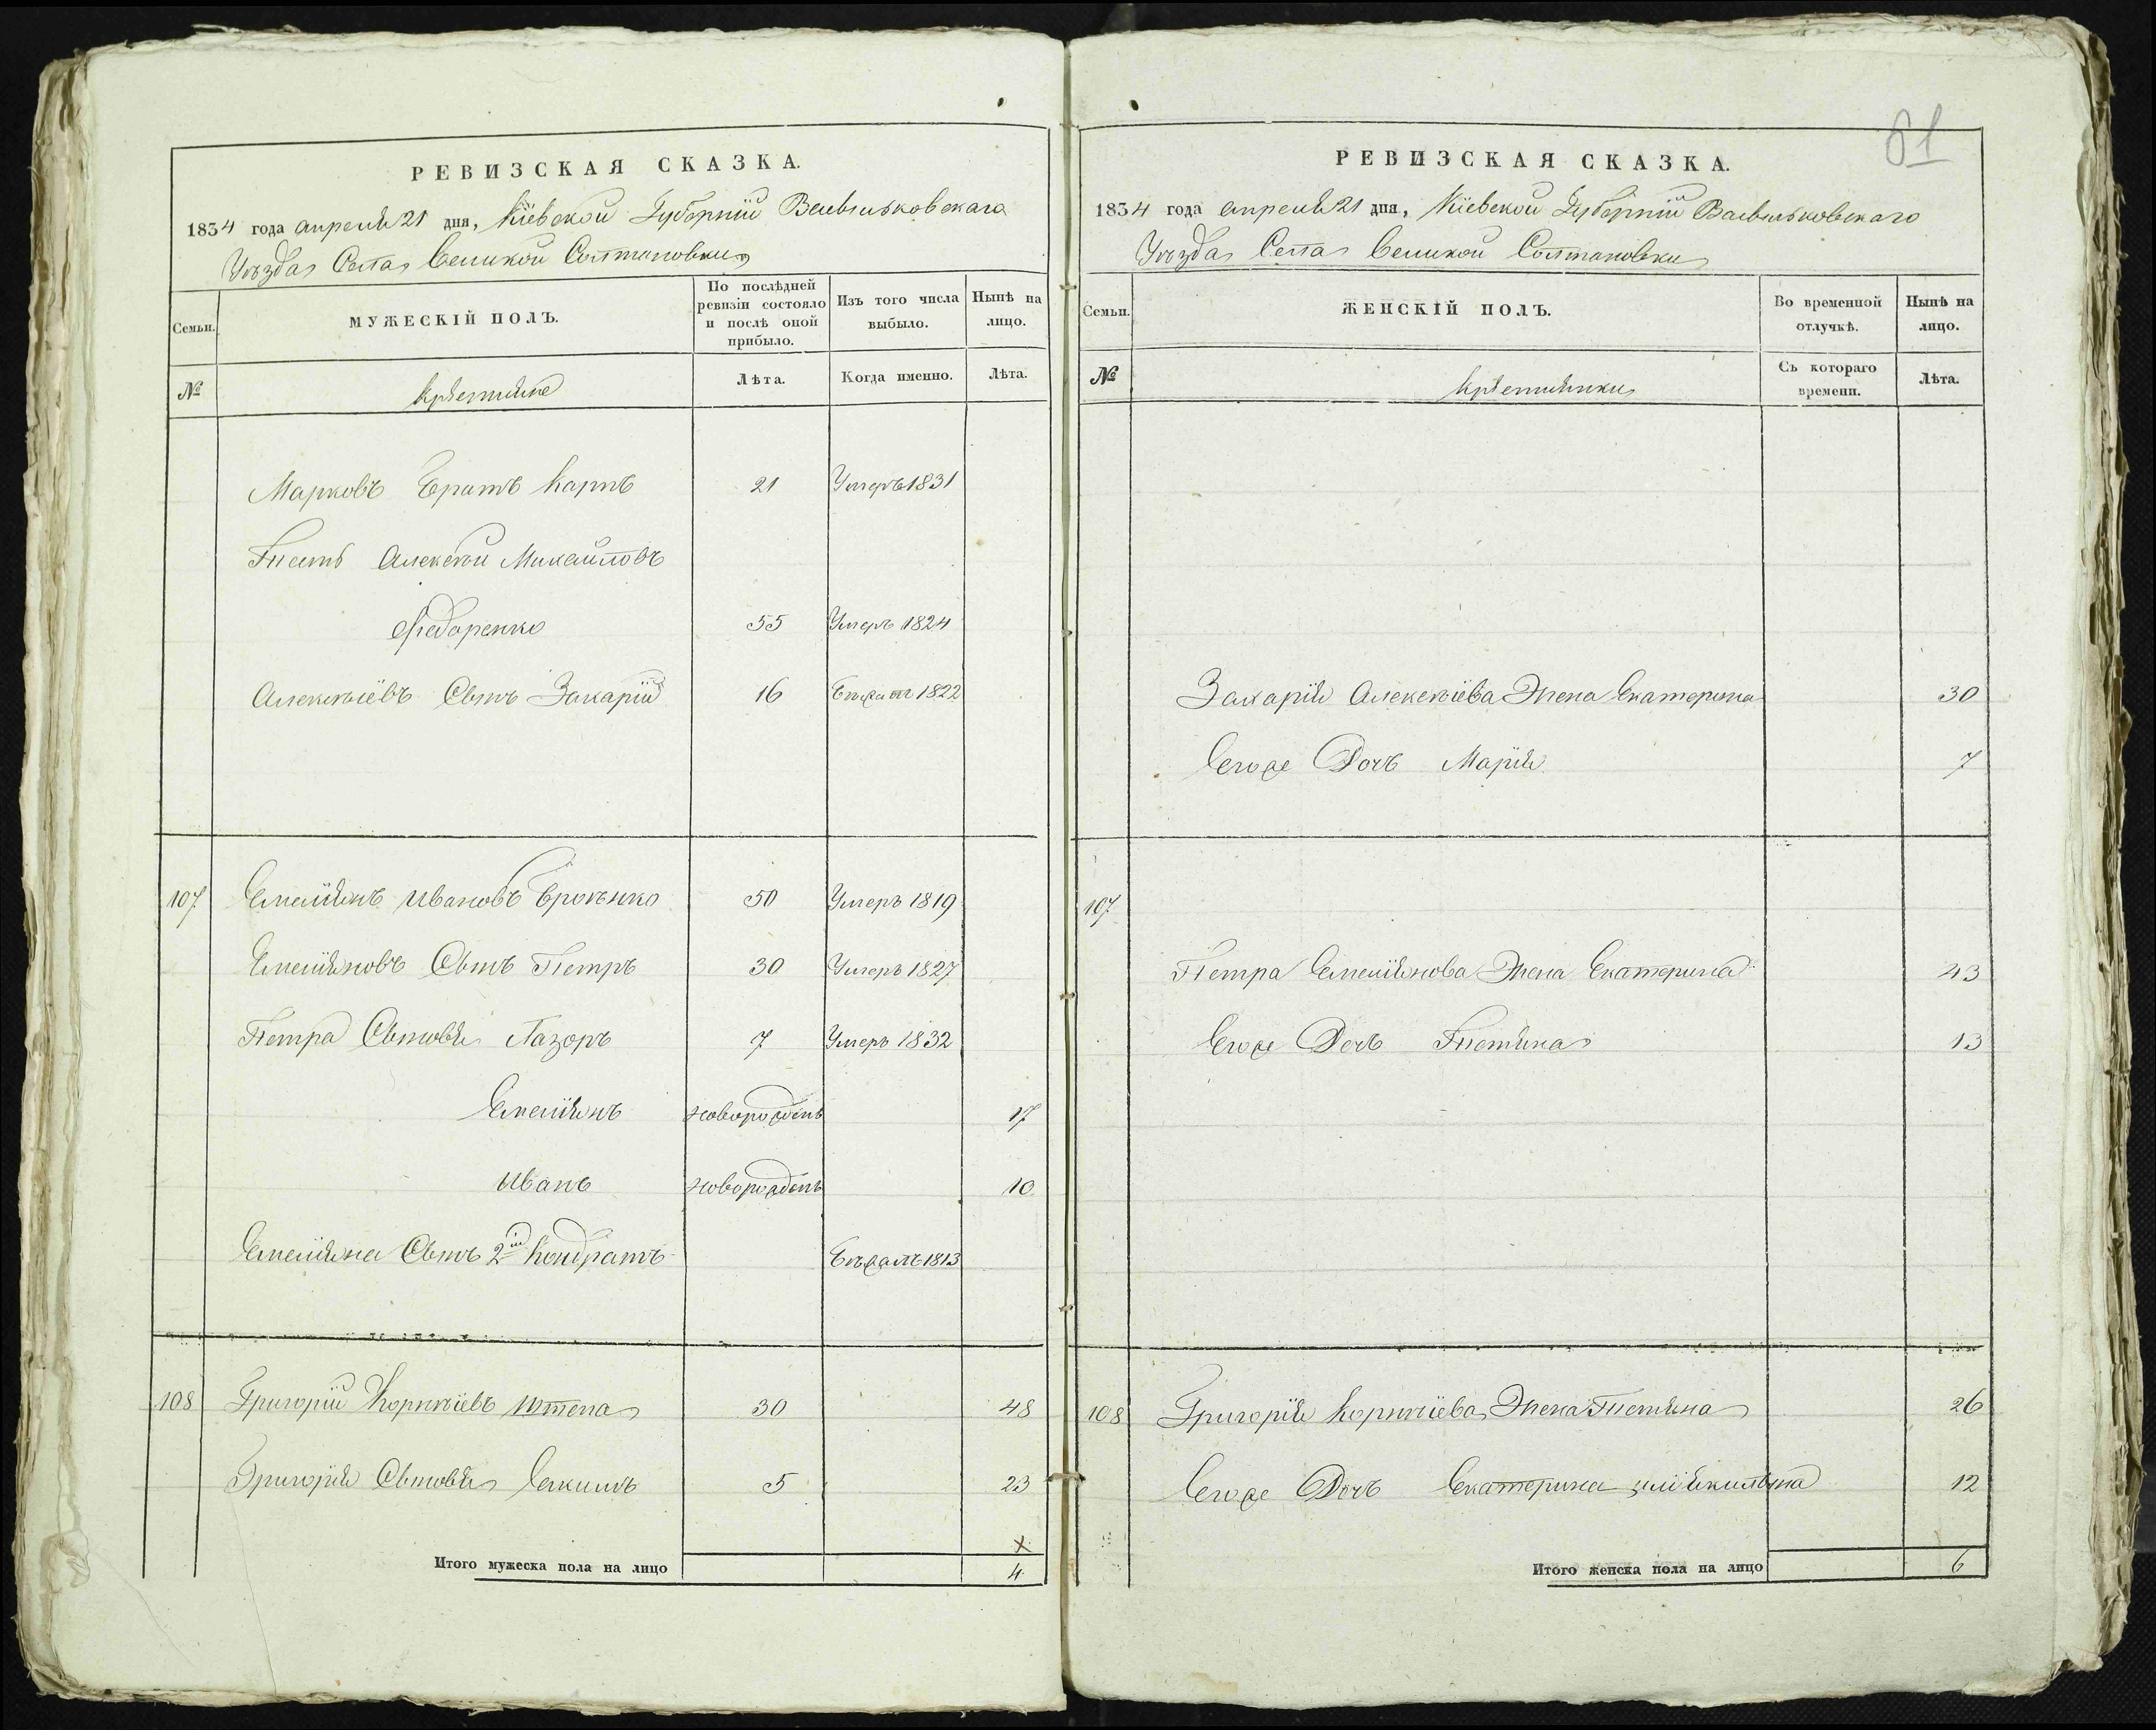 РЕВИЗСКАЯ СКАЗКА.
1834 года апреля 21 дня, Кіевской Губерніи Васильковскаго
Уѣзда Села Великой Солтановки
Семьи.
МУЖЕСКІЙ ПОЛЪ.
По послѣдней ревизіи состояло и послѣ оной прибыло.
Изъ того числа выбыло.
Нынѣ на лицо.
№
Крѣстьяне
Лѣта.
Когда именно.
Лѣта.
Марковъ Братъ Карпъ 21 Умеръ 1831
Тесть Алексѣй Михайловъ
Федоренко 55 Умеръ 1824
Алексѣіевъ Сынъ Захарій 16 Бѣжалъ 1822
107 Емеліянъ Ивановъ 50 Умеръ 1819
Емеліяновъ Сынъ Петръ 30 Умеръ 1827
Петра Сыновья Лазоръ 7 Умеръ 1832
Емеліянъ новорожденъ 17
Иванъ новорожденъ 10
Емеліяна Сынъ 2й Кондратъ Бѣжалъ 1813
108 Григорій Корнѣіевъ Штепа 30 48
Григорія Сыновья Екимъ 5 23
х
Итого мужеска пола на лицо 4
61
РЕВИЗСКАЯ СКАЗКА.
1834 года апреля 21 дня, Кіевской Губерніи Васильковскаго
Уѣзда Села Великой Солтановки
Семьи.
ЖЕНСКІЙ ПОЛЪ.
Во временной отлучкѣ.
Нынѣ на лицо.
№
Крѣстьянки
Съ котораго времени.
Лѣта.
Захарія Алексѣіева Жена Екатерина 30
Егоже Дочь Марія 7
107
Петра Емеліянова Жена Екатерина 43
Егоже Дочь Тетяна 13
108 Григорія Корнѣіева Жена Тетяна 26
Егоже Дочь Екатерина 12
Итого женска пола на лицо 6